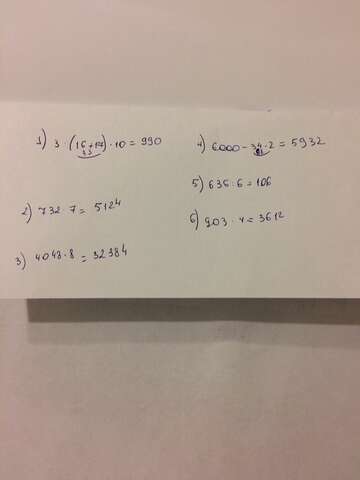 1) 3 · (16+17) · 10 = 990
33
2) 732 · 7 = 5124
3) 4048 · 8 = 32384
4) 6000 - 34 · 2 = 5932
68
5) 636 : 6 = 106
6) 903 · 4 = 3612